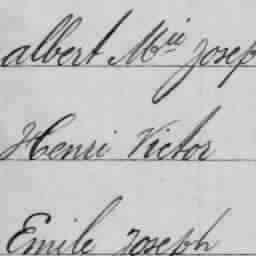 albert Mie Josep
Henri Victor
Emile Joseph